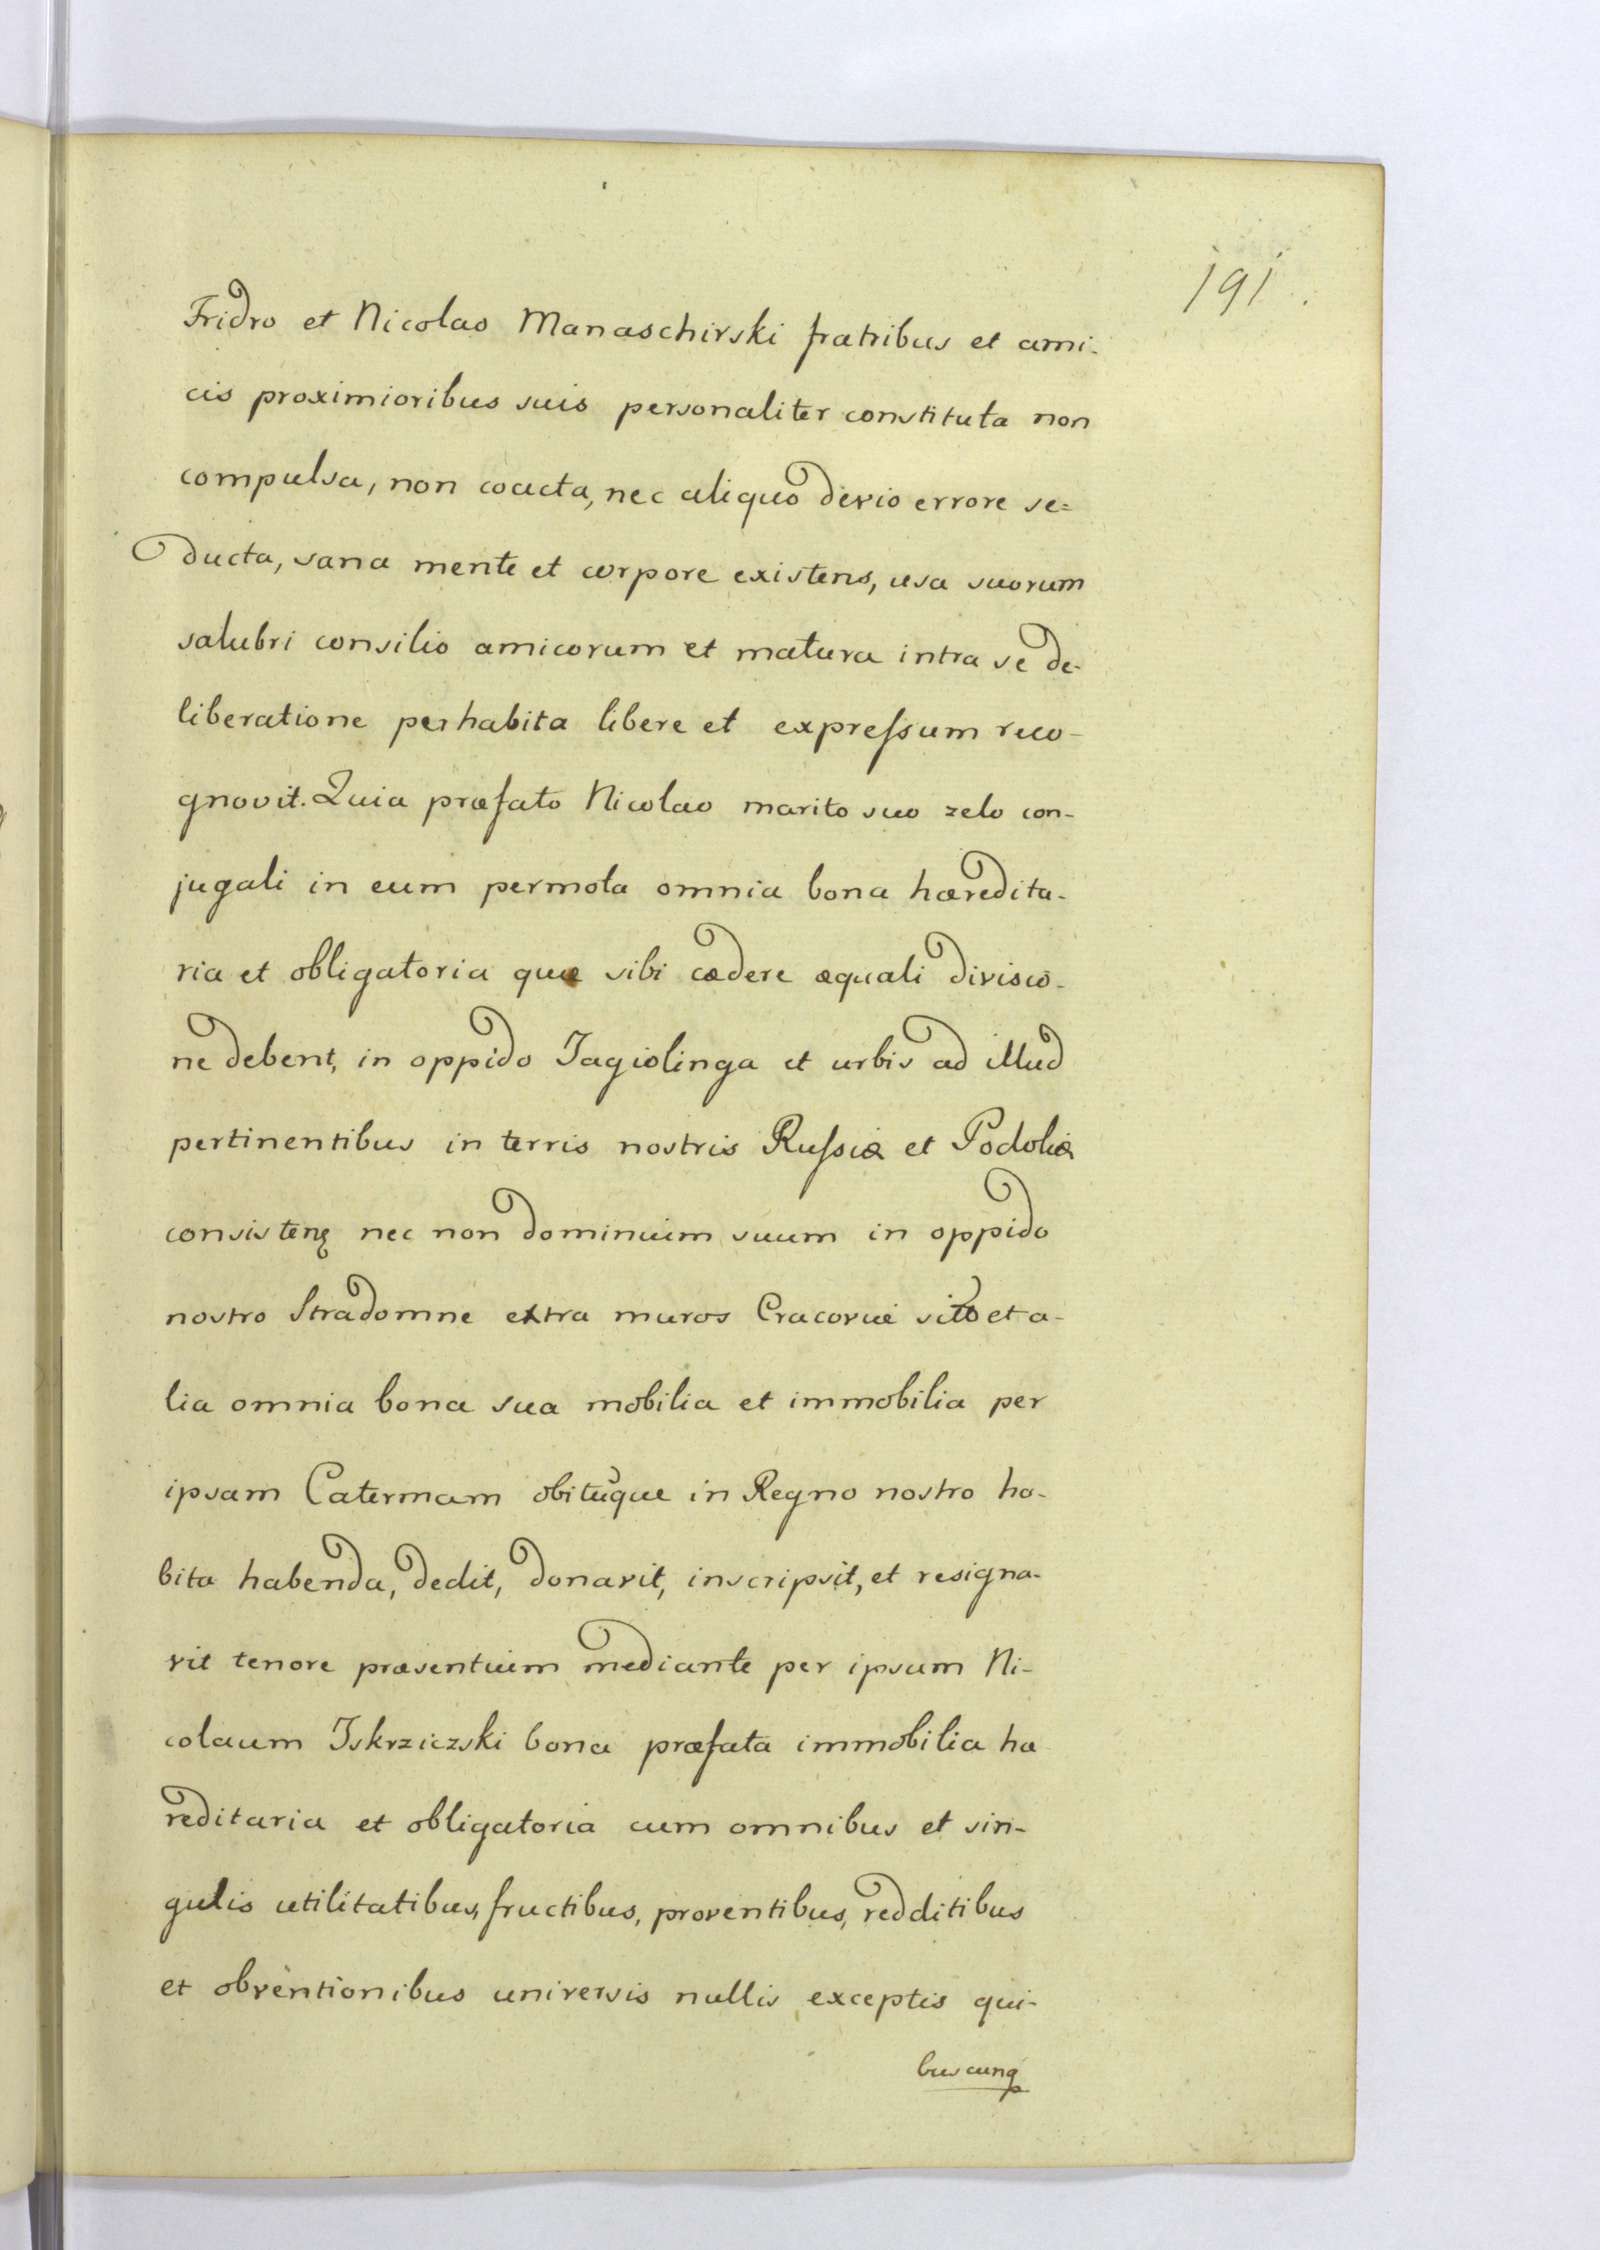 191.
Fridro et Nicolao Manaschirski fratribus et ami-
cis proximioribus suis personaliter constituta non
compulsa, non coacta, nec aliquo devio errore se=
ducta, sana mente et corpore existens, usa suorum
salubri consilio amicorum et matura intra se de-
liberatione perhabita libere et expressum reco-
gnovit. Quia præfato Nicolao marito suo zelo con-
jugali in eum permota omnia bona hæredita-
ria et obligatoria quæ sibi cædere æquali divisio-
ne debent, in oppido Jagiolinga et urbis ad illud
pertinentibus in terris nostris Russiæ et Podoliæ
consistenz nec non dominium suum in oppido
nostro Stradomne extra muros Cracoviæ sito et a-
lia omnia bona sua mobilia et immobilia per
ipsam Catermam obituque in Regno nostro ha-
bita habenda, dedit, donavit, inscripsit, et resigna-
vit tenore præsentium mediante per ipsum Ni-
colaum Iskrziczski bona præfata immobilia hæ
reditaria et obligatoria cum omnibus et sin-
gulis utilitatibus, fructibus, proventibus, redditibus
et obventionibus universis nullis exceptis qui-
buscunq